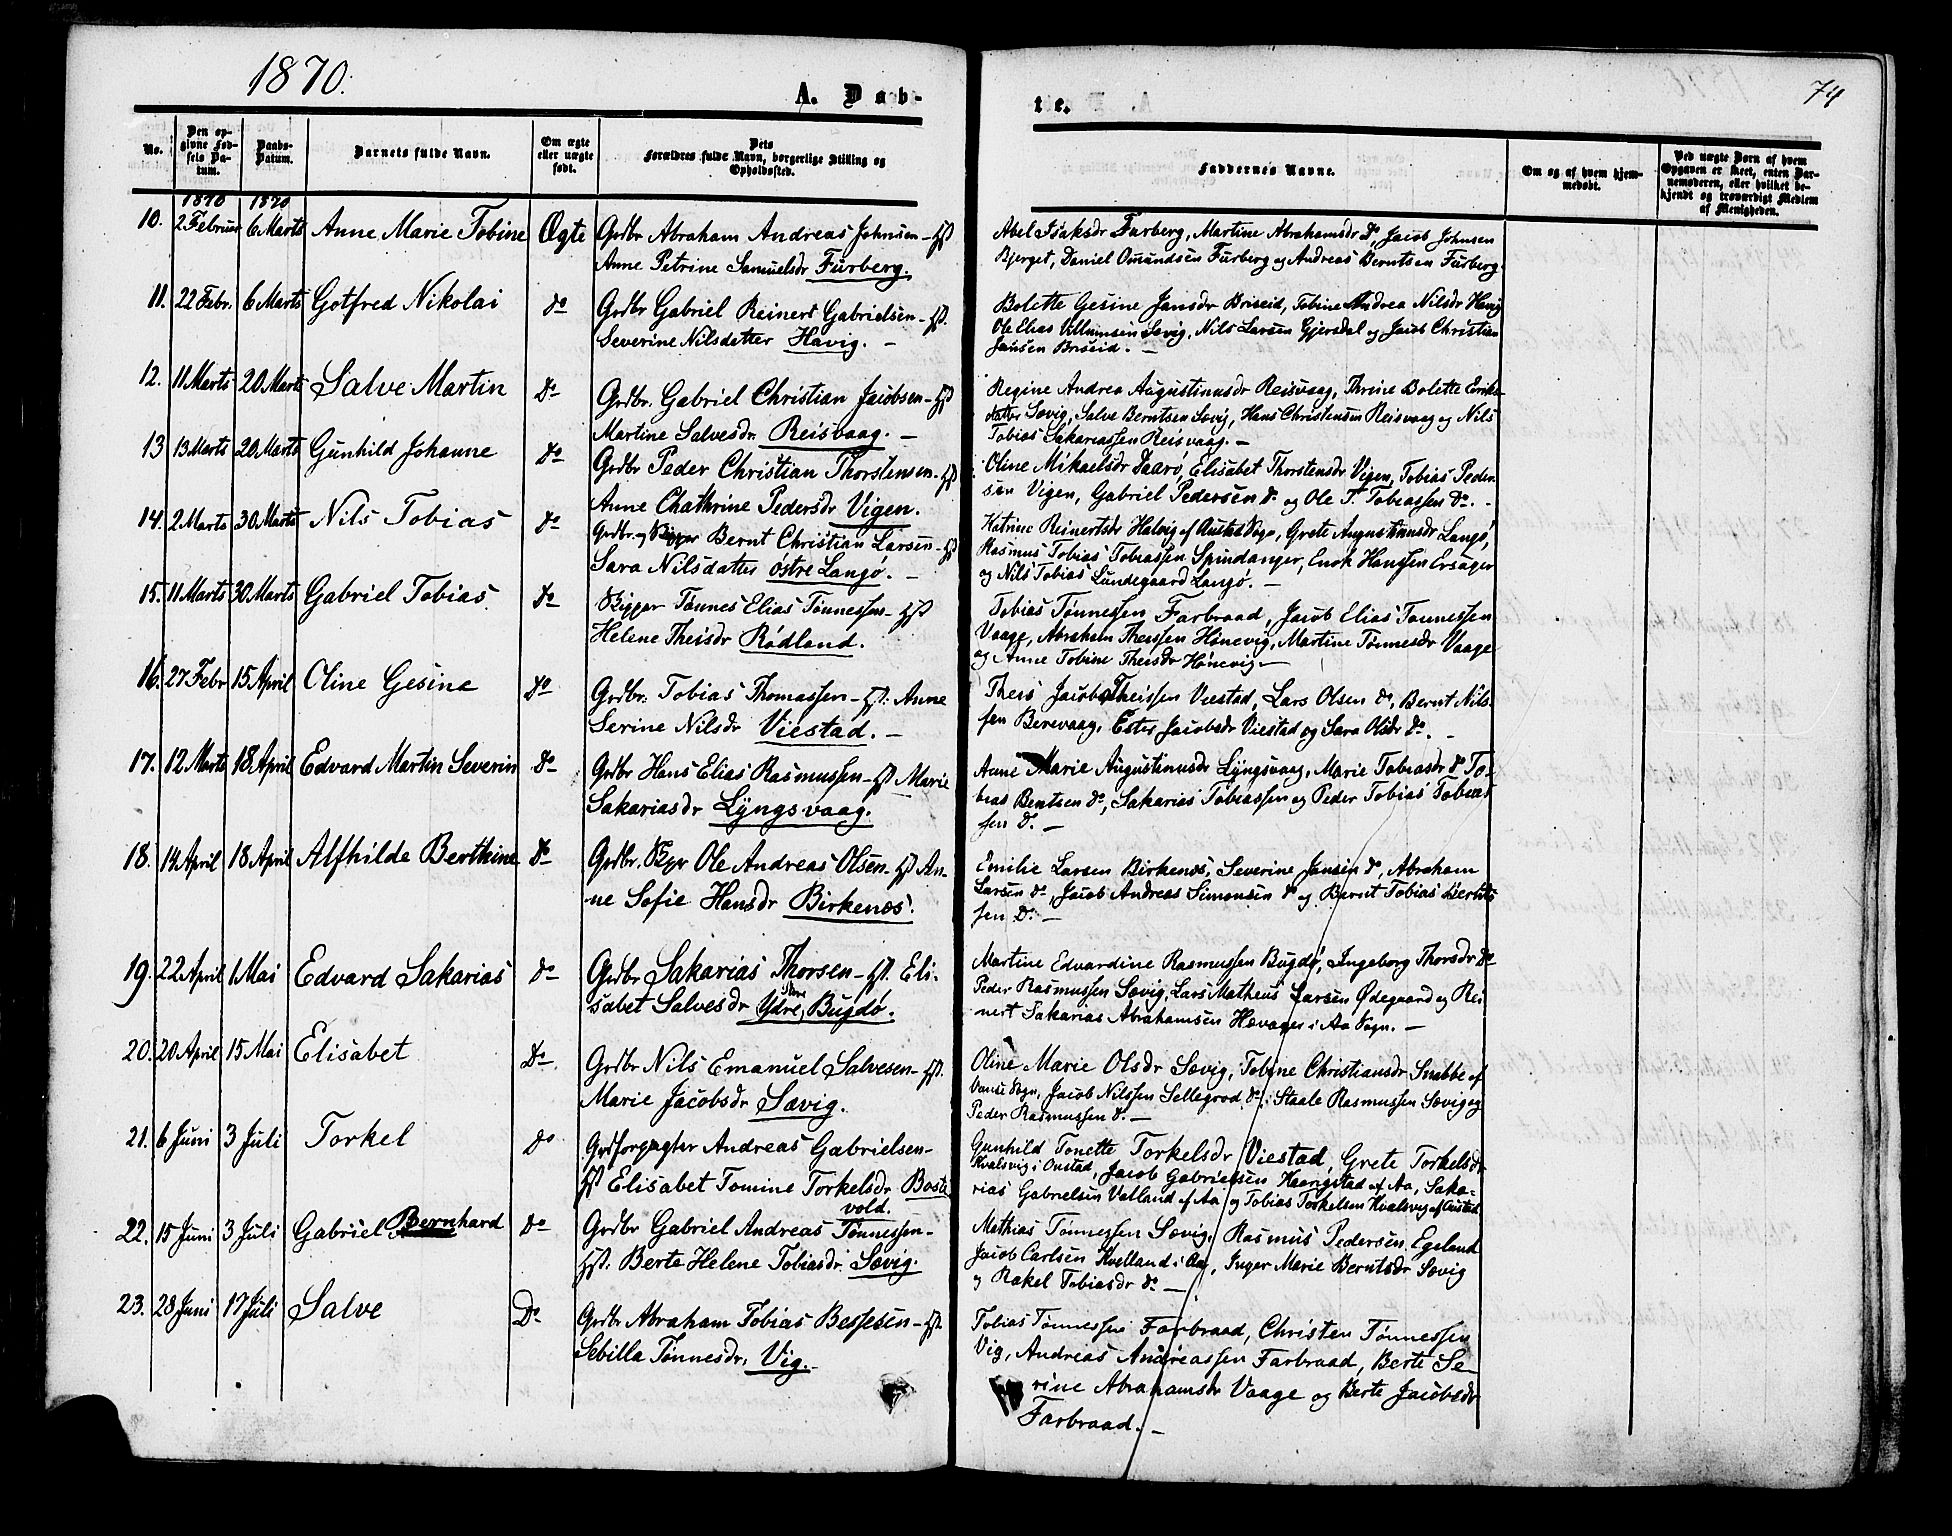 1870.
A. Dab-
No.
Den op-
givne Fød-
sels Da-
tum.
Daabs-
Datum.
Barnets fulde Navn.
Om ægte
eller uægte
født.
Dets
Forældres fulde Navn, borgerlige Stilling og
Opholdssted.
1870 1870
10. 2 Februar 6 Marts Anne Marie Tobine Ægte Grdbr Abraham Andreas Johnsen - Hst
Anne Petrine Samuelsdr Furberg.
11. 22 Febr. 6 Marts Gotfred Nikolai do Grdbr Gabriel Reinert Gabrielsen - Hst.
Severine Nilsdatter Havig. -
12. 11 Marts 20 Marts Salve Martin Do Grdbr. Gabriel Christian Jacobsen - Hst
Martine Salvesdr. Reisvaag. -
13 13 Marts 20 Marts Gunhild Johanne Do Grdbr Peder Christian Thorstensen - Hst
Anne Chathrine Pedersdr Vigen.
14. 2 Marts 30 Marts Nils Tobias Do Grdbr. og Skipper Bernt Christian Larsen - Hst
Sara Nilsdatter østre Langø. -
15. 11 Marts 30 Marts Gabriel Tobias. Do Skipper Tønnes Elias Tønnessen - Hst
Helene Theisdr Rødland.
16. 27 Febr 15 April Oline Gesine Do Grdbr. Tobias Thomassen - Hst. Anne
Serine Nilsdr Viestad. -
17. 12 Marts 18 April Edvard Martin Severin Do Grdbr Hans Elias Rasmussen - Hst Marie
Sakariasdr Lyngsvaag.
18. 14 April 18 April Alfhilde Berthine Do Grdbr. Ole Andreas Olsen - Hst An-
ne Sofie Hansdr Birkenæs.
19. 22 April 1 Mai Edvard Sakarias do Grdbr Sakarias Thorsen - Hst. Eli-
sabet Salvesdr Ydre Bugdø.
20. 20 April 15 Mai Elisabet Do Grdbr Nils Emanuel Salvesen - Hst.
Marie Jacobsdr Sævig.
21. 6 Juni 3 Juli Torkel Do Grdforpagter Andreas Gabrielsen -
Hst Elisabet Tomine Torkelsdr. Boste
vold.
22. 15 Juni 3 Juli Gabriel Bernhard Do Grdbr Gabriel Andreas Tønnessen -
Hst. Berte Helene Tobiasdr. Sævig.
23. 28 Juni 17 Juli Salve Do Grdbr Abraham Tobias Bessesen - Hst.
Sebilla Tønnesdr. Vig. -
74
te.
Faddernes Navne.
Om og af hvem hjem-
medøbt.
Ved uægte Børn af hvem
Opgaven er skeet, enten Bar-
nemoderen, eller hvilket be-
kjendt og troværdigt Medlem
af Menigheden.
Abel Isaksdr Furberg, Martine Abrahamsdr Do, Jacob Johnsen
Bjerget, Daniel Omundsen Furberg og Andreas Berntsen Furberg
Bolette Gesine Jansdr Briseid, Tobine Andrea Nilsdr Havig
Ole Elias Villumsen Sævig, Nils Larsen Gjersdal og Jacob Christian
Jansen Briseid. -
Regine Andrea Augustinusdr Reisvaag, Thrine Bolette Eriks-
datter Sævig, Salve Berntsen Sævig, Hans Christensen Reisvaag og Nils
Tobias Sakariassen Reisvaag. -
Oline Mikaelsdr Daarø, Elisabet Thorstensdr Vigen, Tobias Peder-
sen Vigen, Gabriel Pedersen do og Ole T. Tobiassen Do. -
Katrine Reinertsdr Halvig af Oustad Sogn, Grete Augustinusdr Langø,
Rasmus Tobias Tobiassen Spindanger, Enok Hanssen Ersager
og Nils Tobias Lundegaard Langø. -
Tobias Tønnessen Farbraad, Jacob Elias Tønnessen
Vaage, Abraham Theissen Hønevig, Martine Tønnesdr Vaage
og Anne Tobine Theisdr Hønevig. -
Theis Jacob Theissen Viestad, Lars Olsen do, Bernt Nils-
sen Berevaag, Ester Jacobsdr Viestad og Sara Olsdr do. -
Anne Marie Augustinusdr Lyngsvaag, Marie Tobiasdr do To-
bias Bentsen do, Sakarias Tobiassen og Peder Tobias Tobias-
sen D. -
Emilie Larsen Birkenæs, Severine Jansen do, Abraham
Larsen do, Jacob Andreas Simonsen do og Bernt Tobias Bernts-
sen D. -
Martine Edvardine Rasmussen Bugdø, Ingeborg Thorsdr Do
Peder Rasmussen Sævig, Lars Matheus Larsen Ødegaard og Rei
nert Sakarias Abrahamsen Hævager i Aa Sogn. -
Oline Marie Olsdr Sævig, Tobine Christiansdr Snabbe af
Vanse Sogn, Jacob Nilssen Sellegrod do, Staale Rasmussen Sævig og
Peder Rasmussen do. -
Gunhild Tonette Torkelsdr Viestad, Grete Torkelsdr
Kvalsvig i Oustad, Jacob Gabrielsen Haarigstad af Aa, Saka-
rias Gabrielsen Vatland af Aa og Tobias Torkelsen Kvalsvig af Oustad
Mathias Tønnessen Sævig, Rasmus Pedersen Egeland
Jacob Carlsen Kvelland i Aa, Inger Marie Berntsdr Sævig
og Rakel Tobiasdr do -
Tobias Tønnessen Farbraad, Christen Tønnessen
Vig, Andreas Andreassen Farbraad, Berte Se-
rine Abrahamsdr Vaage og Berte Jacobsdr
Farbraad. -